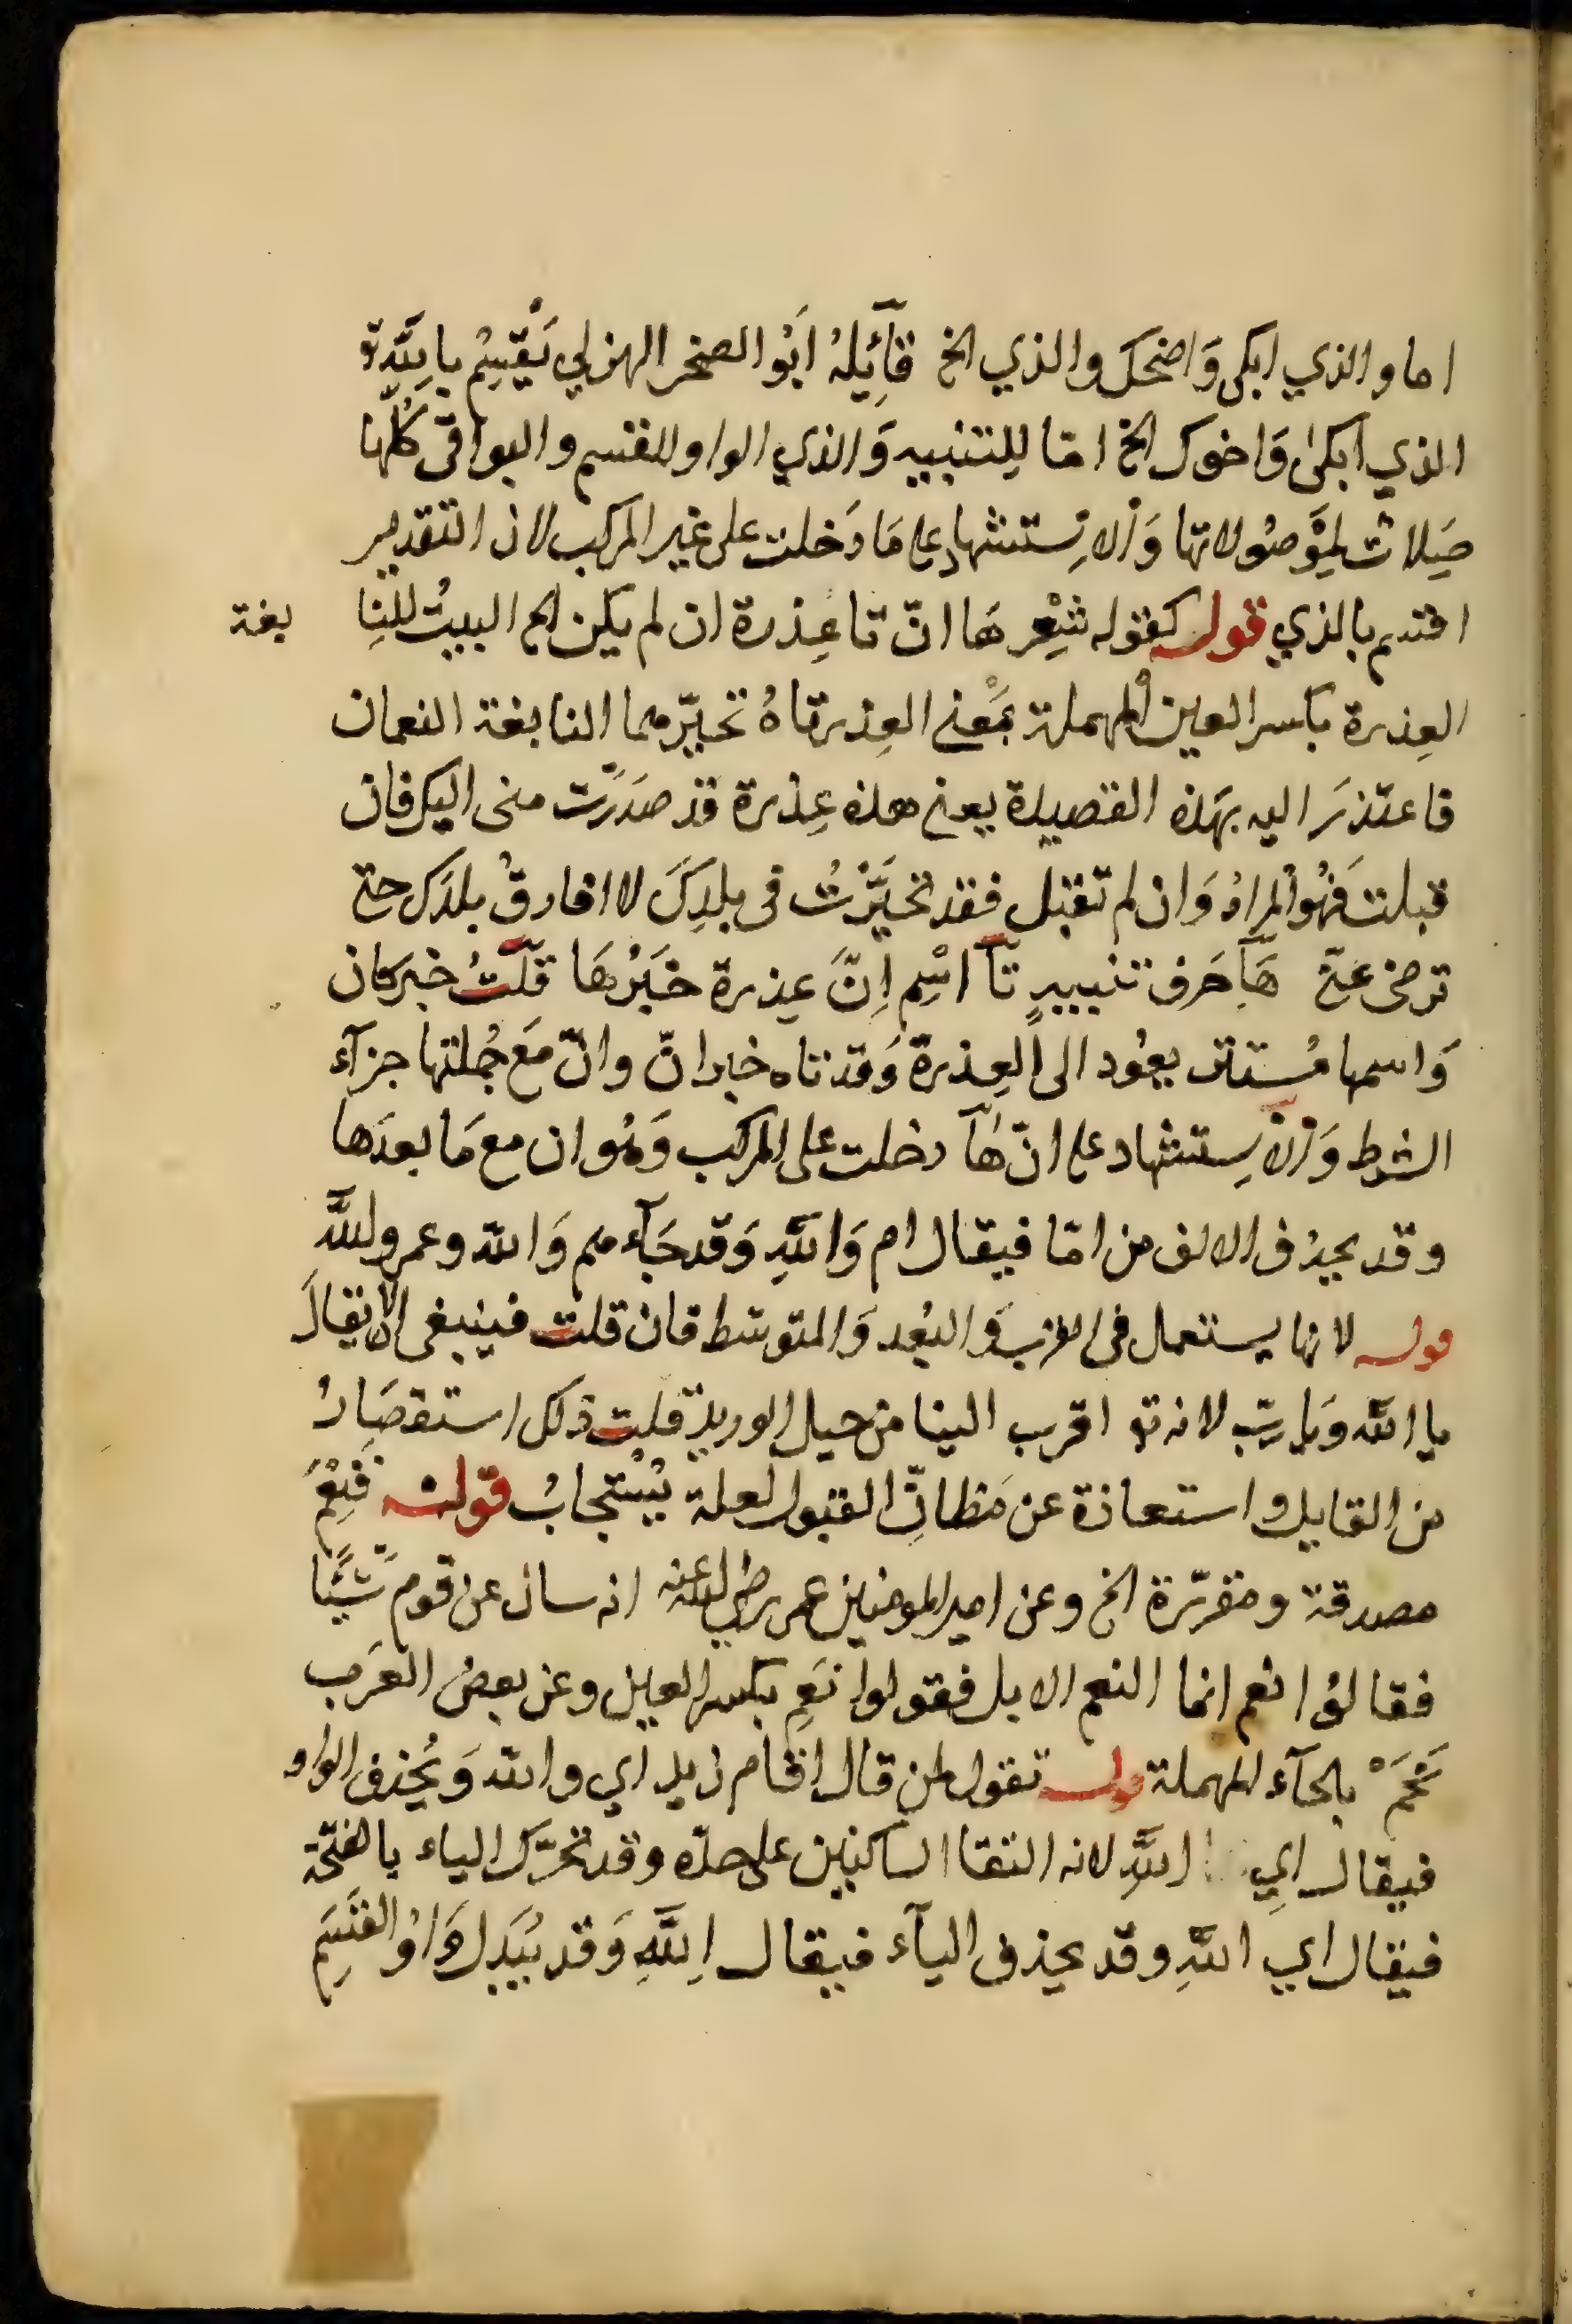 اما والذي ابكى وَاضحَك والذي الخ قآئِلهُ ابَُو الصخر الهزلي يَقْسِمُ بِاللّهِ تو
الذي ابكىٰ وَاخوك الخ امّا لِلتنبيه وَالذي الواو للقسم والبواقى كُلّها
صِلاتٌ لِمَوْصُولاتها وَالاِستشهاد على مَا دَخلت على غير المركب لان التقدير
اقسم بالذي قوله كقوله شِعْر هَا انّ تا عِذرة ان لم يكن الخ البيتُ للنِا بغة
العِذرة بكسر العين المهملة بمَعْنى العِذر تاهُ تحيّر مما النابغة النعمان
فاعتذرَ اليه بهَذه القصيدة يعنى هذه عِذرة قد صدَرَت منى اليك فان
قبلت فَهُوالمرادُ وَان لم تقبل فقد تحيَّرْتُ فى بلدِكَ لا افارقُ بلدَك حتى
ترضى عنى هَآ حَرف تنبيهٍ تآ اسْم اِنَّ عِذرة خَبَرُهَا قلّتُ خبر كان
وَاسمها مُستتر يعُود الى العِذرة وَقد تاه خبر انّ وانّ مَعَ جُملتها جزآء
الشرط وَالاِستشهاد على انّ هَآ دخلت على المركب وَهُو ان مع مَا بعدَها
وقد يحذف الالف من امّا فيقال ام وَاللّهِ وَقد جَآء هم وَاللّه وعم وللّهِ
قوله لانها يستعمل فى القرب وَالبُعد وَالمتوسّط فان قلت فينبغى الا يقالَ
يا اللّه وَيا ربّ لانه تو اقرب الينا من حبل الوريد قلت ذلك استقصَارُ
من القايل واستعاذة عن مَظانِّ القبول لعله يُسْتجابُ قوله فنِعْمَ
مصدقة ومقرّرة الخ وعن امير المومنين عمر رضى اللّه عنه انه سال عن قوم شيَّا
فقالوُا نعم انما النعم الابل فقولوا نَعِم بكسر العين وعن بعض العَرب
نَحَمْ بالحآء المهملة قوله تقول لمن قال اقام زيد اي واللّه وَيُحذف الواو
فيقال ايِ اللّهِ لانه التقا الساكنين على حدّه وقد تحرّك الياء بالفتحة
فيقال اي اللّهِ وقد يحذف اليآء فيقال اِللّهِ وَقد يُبَدل وَاوُ القَسَمِ